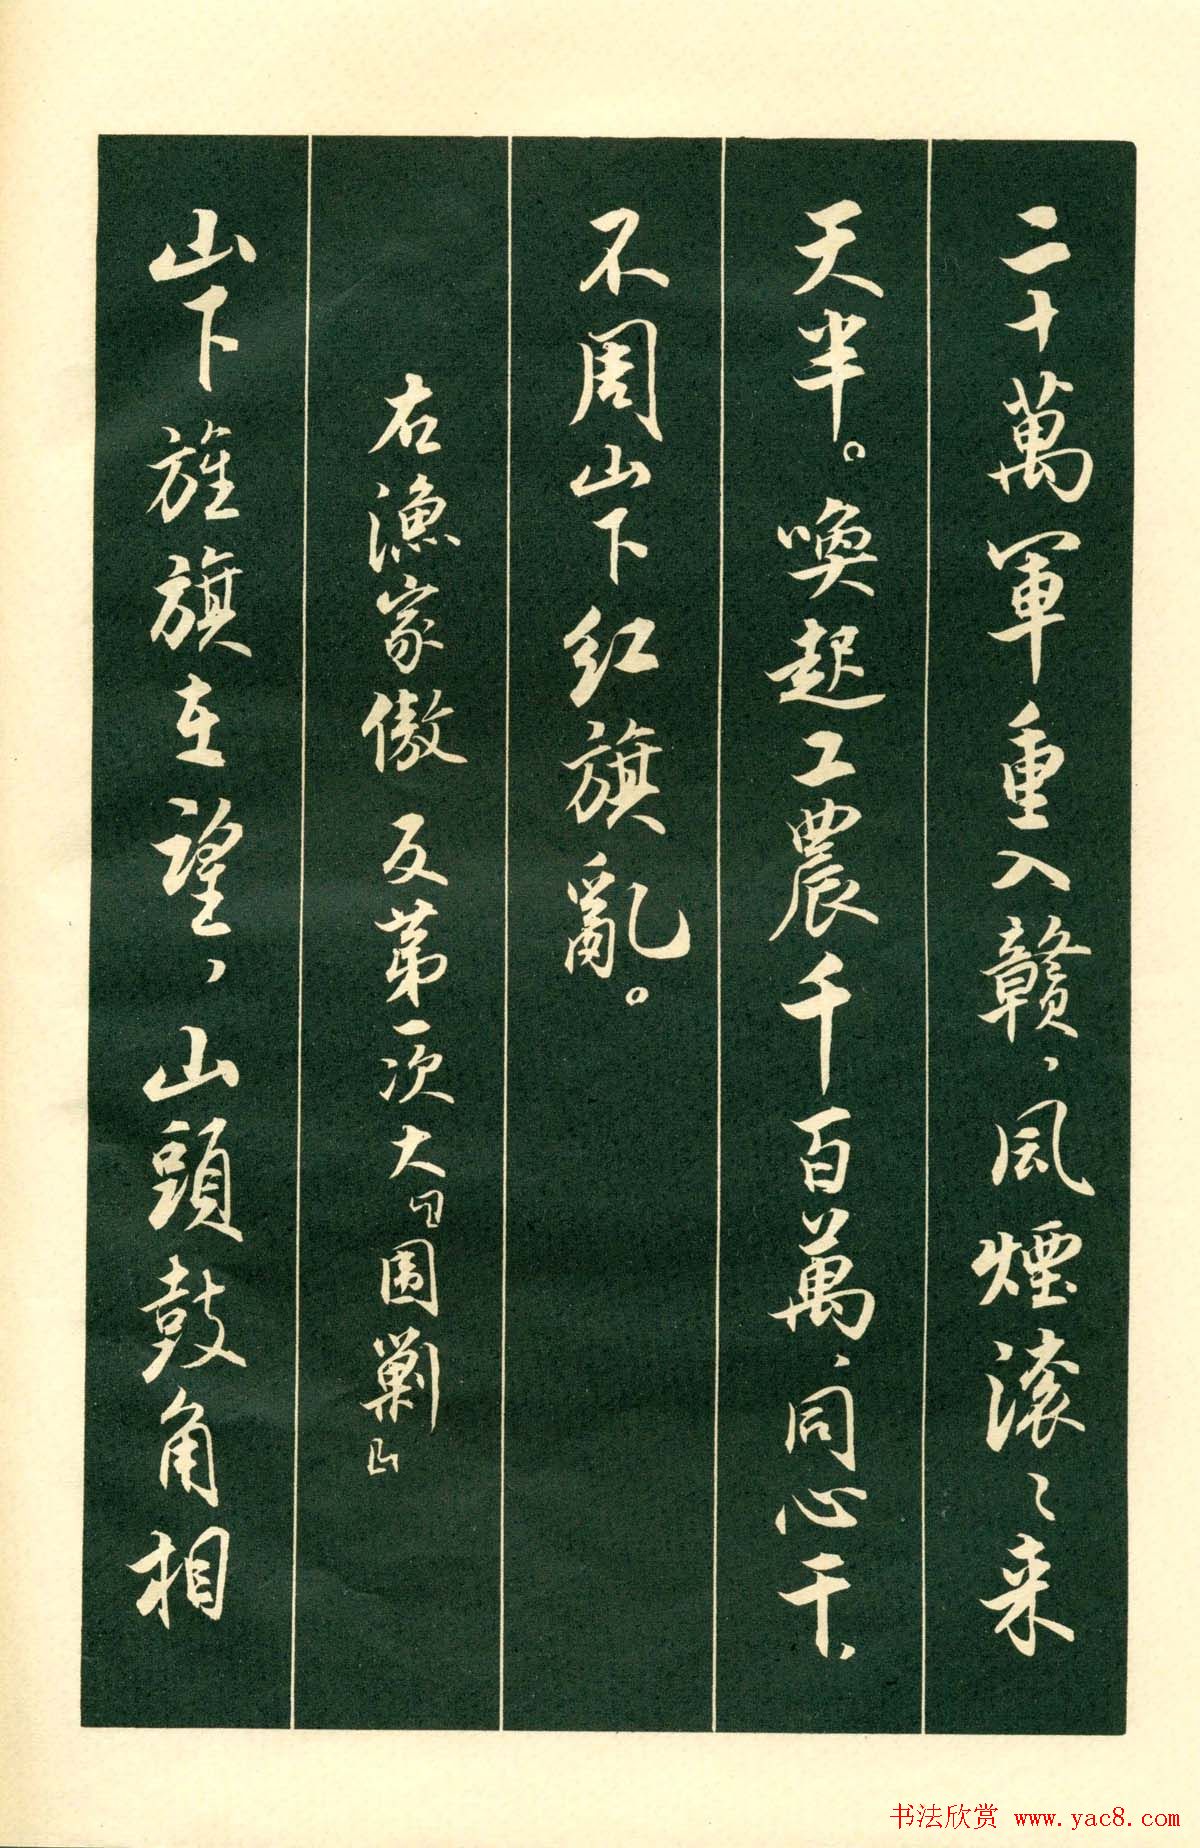 二十萬軍重入贛、風煙滚〻来
天半。喚起工農千百萬、同心干、
不周山下红旗亂。
右漁家傲 反第一次大「围剿」
山下旌旗在望、山頭鼓角相
书法欣赏 www.yac8.com